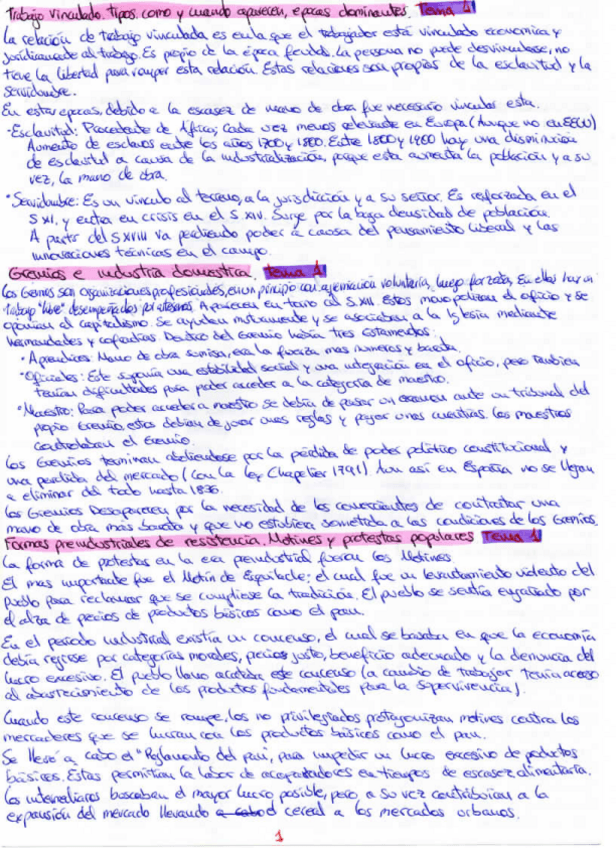 Trabajo vinculado. tipos. como y cuando aparecen, epocas dominantes. Tema 1
La relación de trabajo vinculada es en la que el trabajador está vinculado economica y
juridicamente al trabajo. Es propio de la época feudal. La persona no puede desvincularse, no
tiene la libertad para romper esta relación. Estas relaciones son propias de la esclavitud y la
servidumbre.
En estas epocas, debido a la escasez de mano de obra fue necesario vincular esta.
-Esclavitud: Procedente de África; Cada vez menos relevante en Europa (Aunque no en EEUU)
Aumento de esclavos entre los años 1700 y 1800. Entre 1800 y 1900 hay una disminución
de esclavitud a causa de la industrialización, porque esta aumenta la población y a su
vez, la mano de obra.
• Servidumbre: Es un vinculo al terreno, a la jurisdicción y a su señor. Es reforzada en el
S XI, y entra en crisis en el S. XIV. Surge por la baja densidad de población.
A partir del S XVIII va perdiendo poder a causa del pensamiento liberal y las
innovaciones técnicas en el campo.
Gremios e industria domestica. Tema 1
Los Gremios son organizaciones profesionales, en un principio con agremiación voluntaria, luego forzada, En ellos hay un
trabajo "libre" desempeñados por artesanos. Aparecen en torno al S. XII. Estos monopolizan el oficio y se
oponian al capitalismo. Se ayudan mutuamente y se asociaban a la Iglesia mediante
hermandades y cofradias. Dentro del Gremio había tres estamentos:
• Aprendices: Mano de obra sumisa, era la fuerza mas numerosa y barata.
• Oficiales: Este suponia una estabilidad social y una integración en el oficio, pero tambien
tenian dificultades para poder acceder a la categoria de maestro.
• Maestro: Para poder acceder a maestro se debia de pasar un examen ante un tribunal del
propio Gremio, estos debian de jurar unas reglas y pagar unas cuantias. Los maestros
controlaban el Gremio.
Los Gremios terminan aboliendose por la pérdida de poder politico constitucional y
una perdida del mercado (con la ley Chapelier 1791) Aun asi en España no se llegan
a eliminar del todo hasta 1836.
Los Gremios Desaparecen por la necesidad de los comerciantes de contratar una
mano de obra más barata y que no estubiera sometida a las condiciones de los Gremios.
Formas preindustriales de resistencia. Motines y protestas populares Tema 1
La forma de protestas en la era preindustrial fueron los Motines
El mas importante fue el Motín de Esquilache; el cual fue un levantamiento violento del
pueblo para reclamar que se cumpliese la tradición. El pueblo se sentía engañado por
el alza de precios de productos básicos como el pan.
En el periodo industrial existía un consenso, el cual se basaba en que la economía
debía regirse por categorías morales, precios justo, beneficio adecuado y la denuncia del
lucro excesivo. El pueblo llano acataba este consenso (a cambio de trabajar tenia acceso
al abastecimiento de los productos fundamentales para la supervivencia).
Cuando este consenso se rompe, los no privilegiados protagonizan motines contra los
mercaderes que se lucran con los productos básicos como el pan.
Se llevó a cabo el "Reglamento del pan", para impedir un lucro excesivo de productos
básicos. Estas permitian la labor de acaparadores en tiempos de escasez alimentaria.
Los intermediarios buscaban el mayor lucro posible, pero a su vez contribuían a la
expansión del mercado llevando a cabo cereal a los mercados urbanos.
1